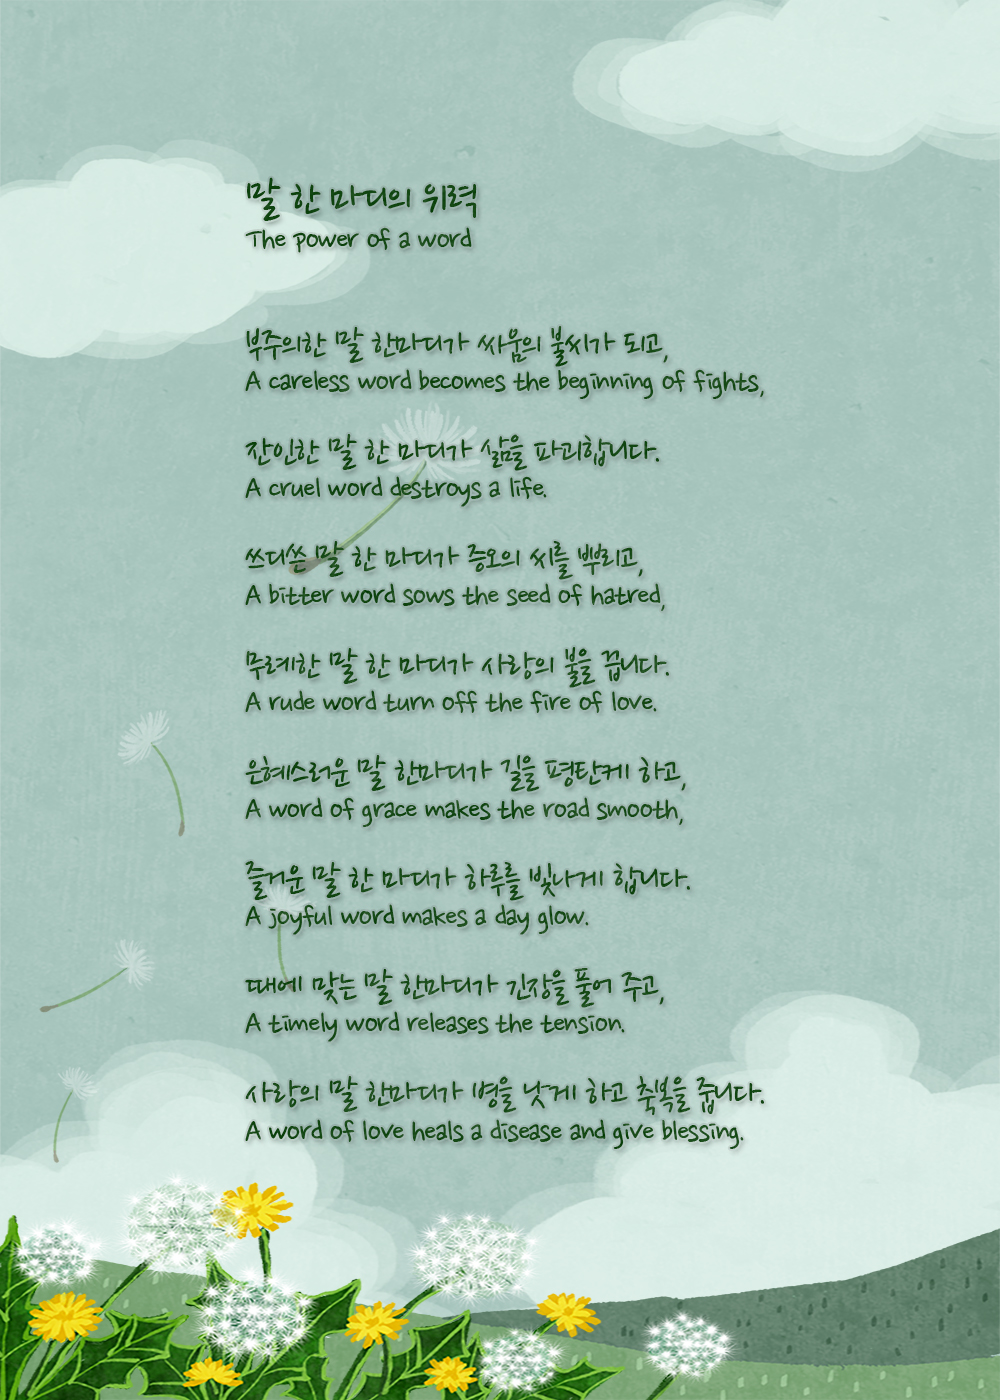 말 한 마디의 위력
The power of a word
부주의한 말 한마디가 싸움의 불씨가 되고,
A careless word becomes the beginning of fights,
잔인한 말 한 마디가 삶을 파괴합니다.
A cruel word destroys a life.
쓰디쓴 말 한 마디가 증오의 씨를 뿌리고,
A bitter word sows the seed of hatred,
무례한 말 한 마디가 사랑의 불을 끕니다.
A rude word turn off the fire of love.
은혜스러운 말 한마디가 길을 평탄케 하고,
A word of grace makes the road smooth,
즐거운 말 한 마디가 하루를 빛나게 합니다.
A joyful word makes a day glow.
때에 맞는 말 한마디가 긴장을 풀어 주고,
A timely word releases the tension.
사랑의 말 한마디가 병을 낫게 하고 축복을 줍니다.
A word of love heals a disease and give blessing.